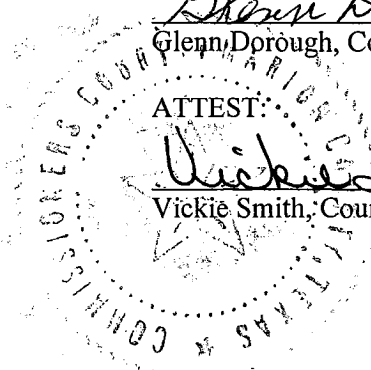 Glenn Dorough, Co
ATTEST:
Vickie
Vickie Smith, Coun
COMMISSIONERS COURT MARION CO TEXAS